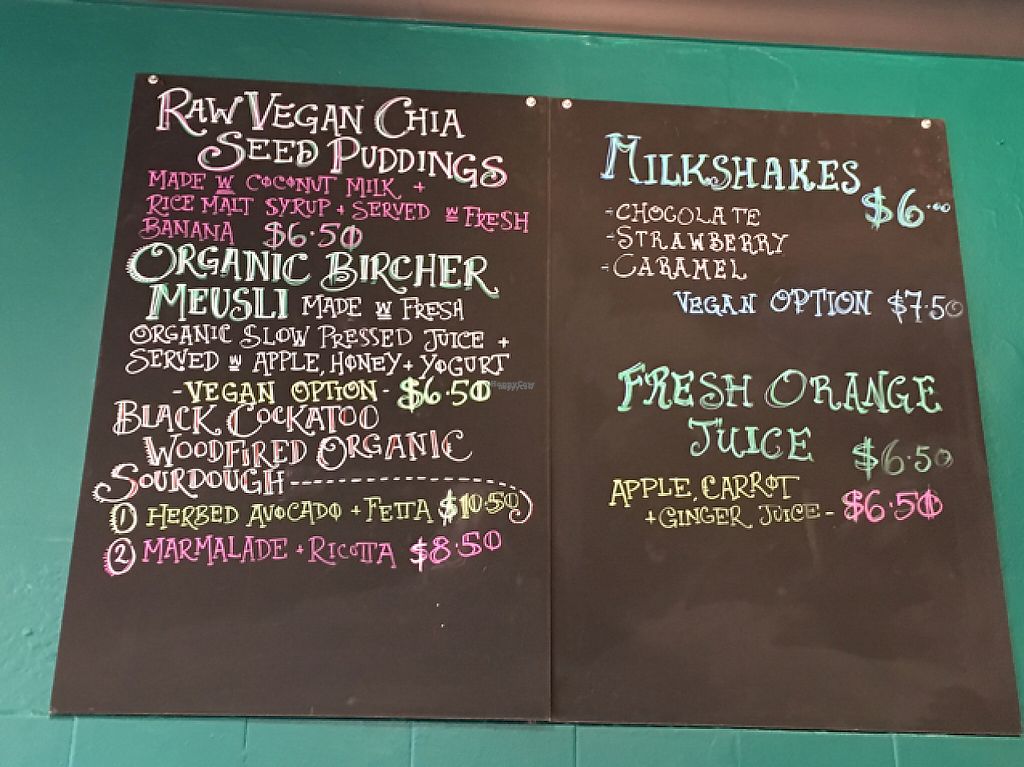 RAW VEGAN CHIA
SEED PUDDINGS
MADE W COCONUT MILK +
RICE MALT SYRUP + SERVED W FRESH
BANANA $6.50
ORGANIC BIRCHER
MEUSLI MADE W FRESH
ORGANIC SLOW PRESSED JUICE +
SERVED W APPLE, HONEY + YOGURT
- VEGAN OPTION - $6.50
BLACK COCKATOO
WOODFIRED ORGANIC
SOURDOUGH
① HERBED AVOCADO + FETTA $10.50
② MARMALADE + RICOTTA $8.50
MILKSHAKES
$6.00
- CHOCOLATE
- STRAWBERRY
- CARAMEL
VEGAN OPTION $7.50
FRESH ORANGE
JUICE $6.50
APPLE, CARROT
+ GINGER JUICE - $6.50
HappyCow